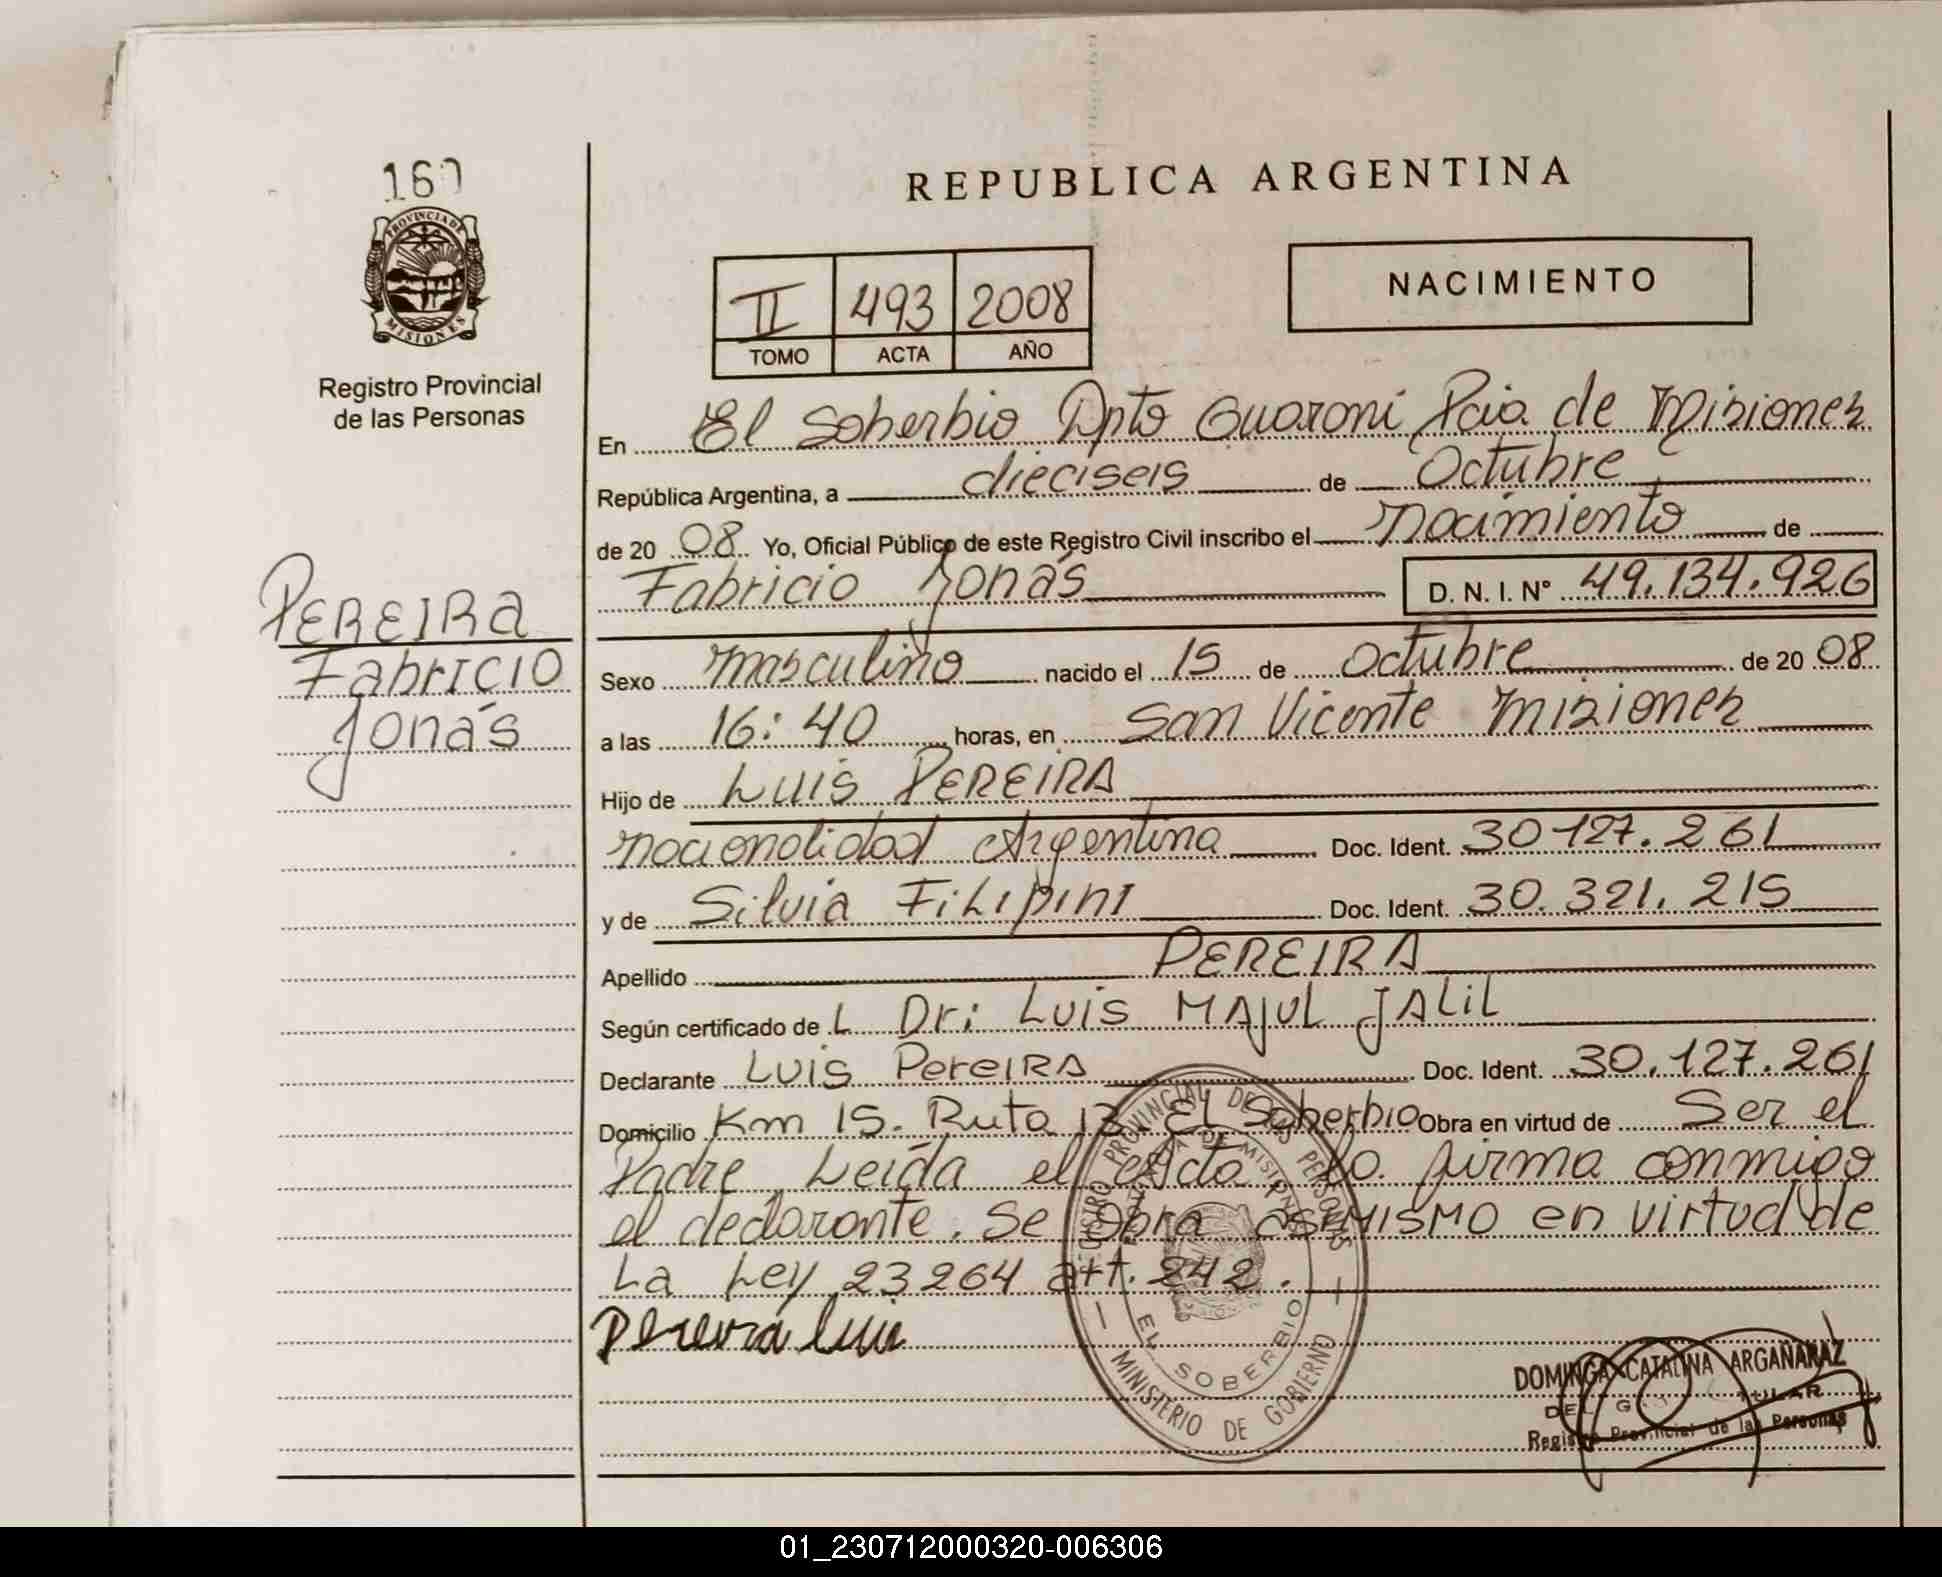 160
PROVINCIA DE
MISIONES
Registro Provincial
de las Personas
REPUBLICA ARGENTINA
II 493 2008
TOMO ACTA AÑO
NACIMIENTO
En El Soberbio Dpto Guaroni Pcia de Misiones
República Argentina, a dieciseis de Octubre
de 20 08 Yo, Oficial Público de este Registro Civil inscribo el nacimiento de
Fabricio Jonás D. N. I. Nº 49.134.926
PEREIRA
Fabricio
Jonás
Sexo masculino nacido el 15 de Octubre de 20 08
a las 16:40 horas, en San Vicente Misiones
Hijo de Luis PEREIRA
nacionalidad Argentina Doc. Ident. 30 127.261
y de Silvia Filipini Doc. Ident. 30.321.215
Apellido PEREIRA
Según certificado de L Dr: Luis MAJUL JALIL
Declarante Luis Pereira Doc. Ident. 30.127.261
Domicilio Km 15. Ruta 13. El Soberbio Obra en virtud de Ser el
Padre Leída el acta, la firma conmigo
el declarante. Se obra asimismo en virtud de
La Ley 23264 art. 242.
Pereira Luis
REGISTRO PROVINCIAL DE LAS PERSONAS
DE MISIONES
EL SOBERBIO
MINISTERIO DE GOBIERNO
DOMINGA CATALINA ARGAÑARAZ
Registro Provincial de las Personas
01_230712000320-006306